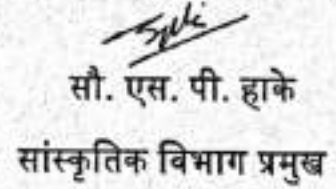 सौ. एस. पी. हाके
सांस्कृतिक विभाग प्रमुख